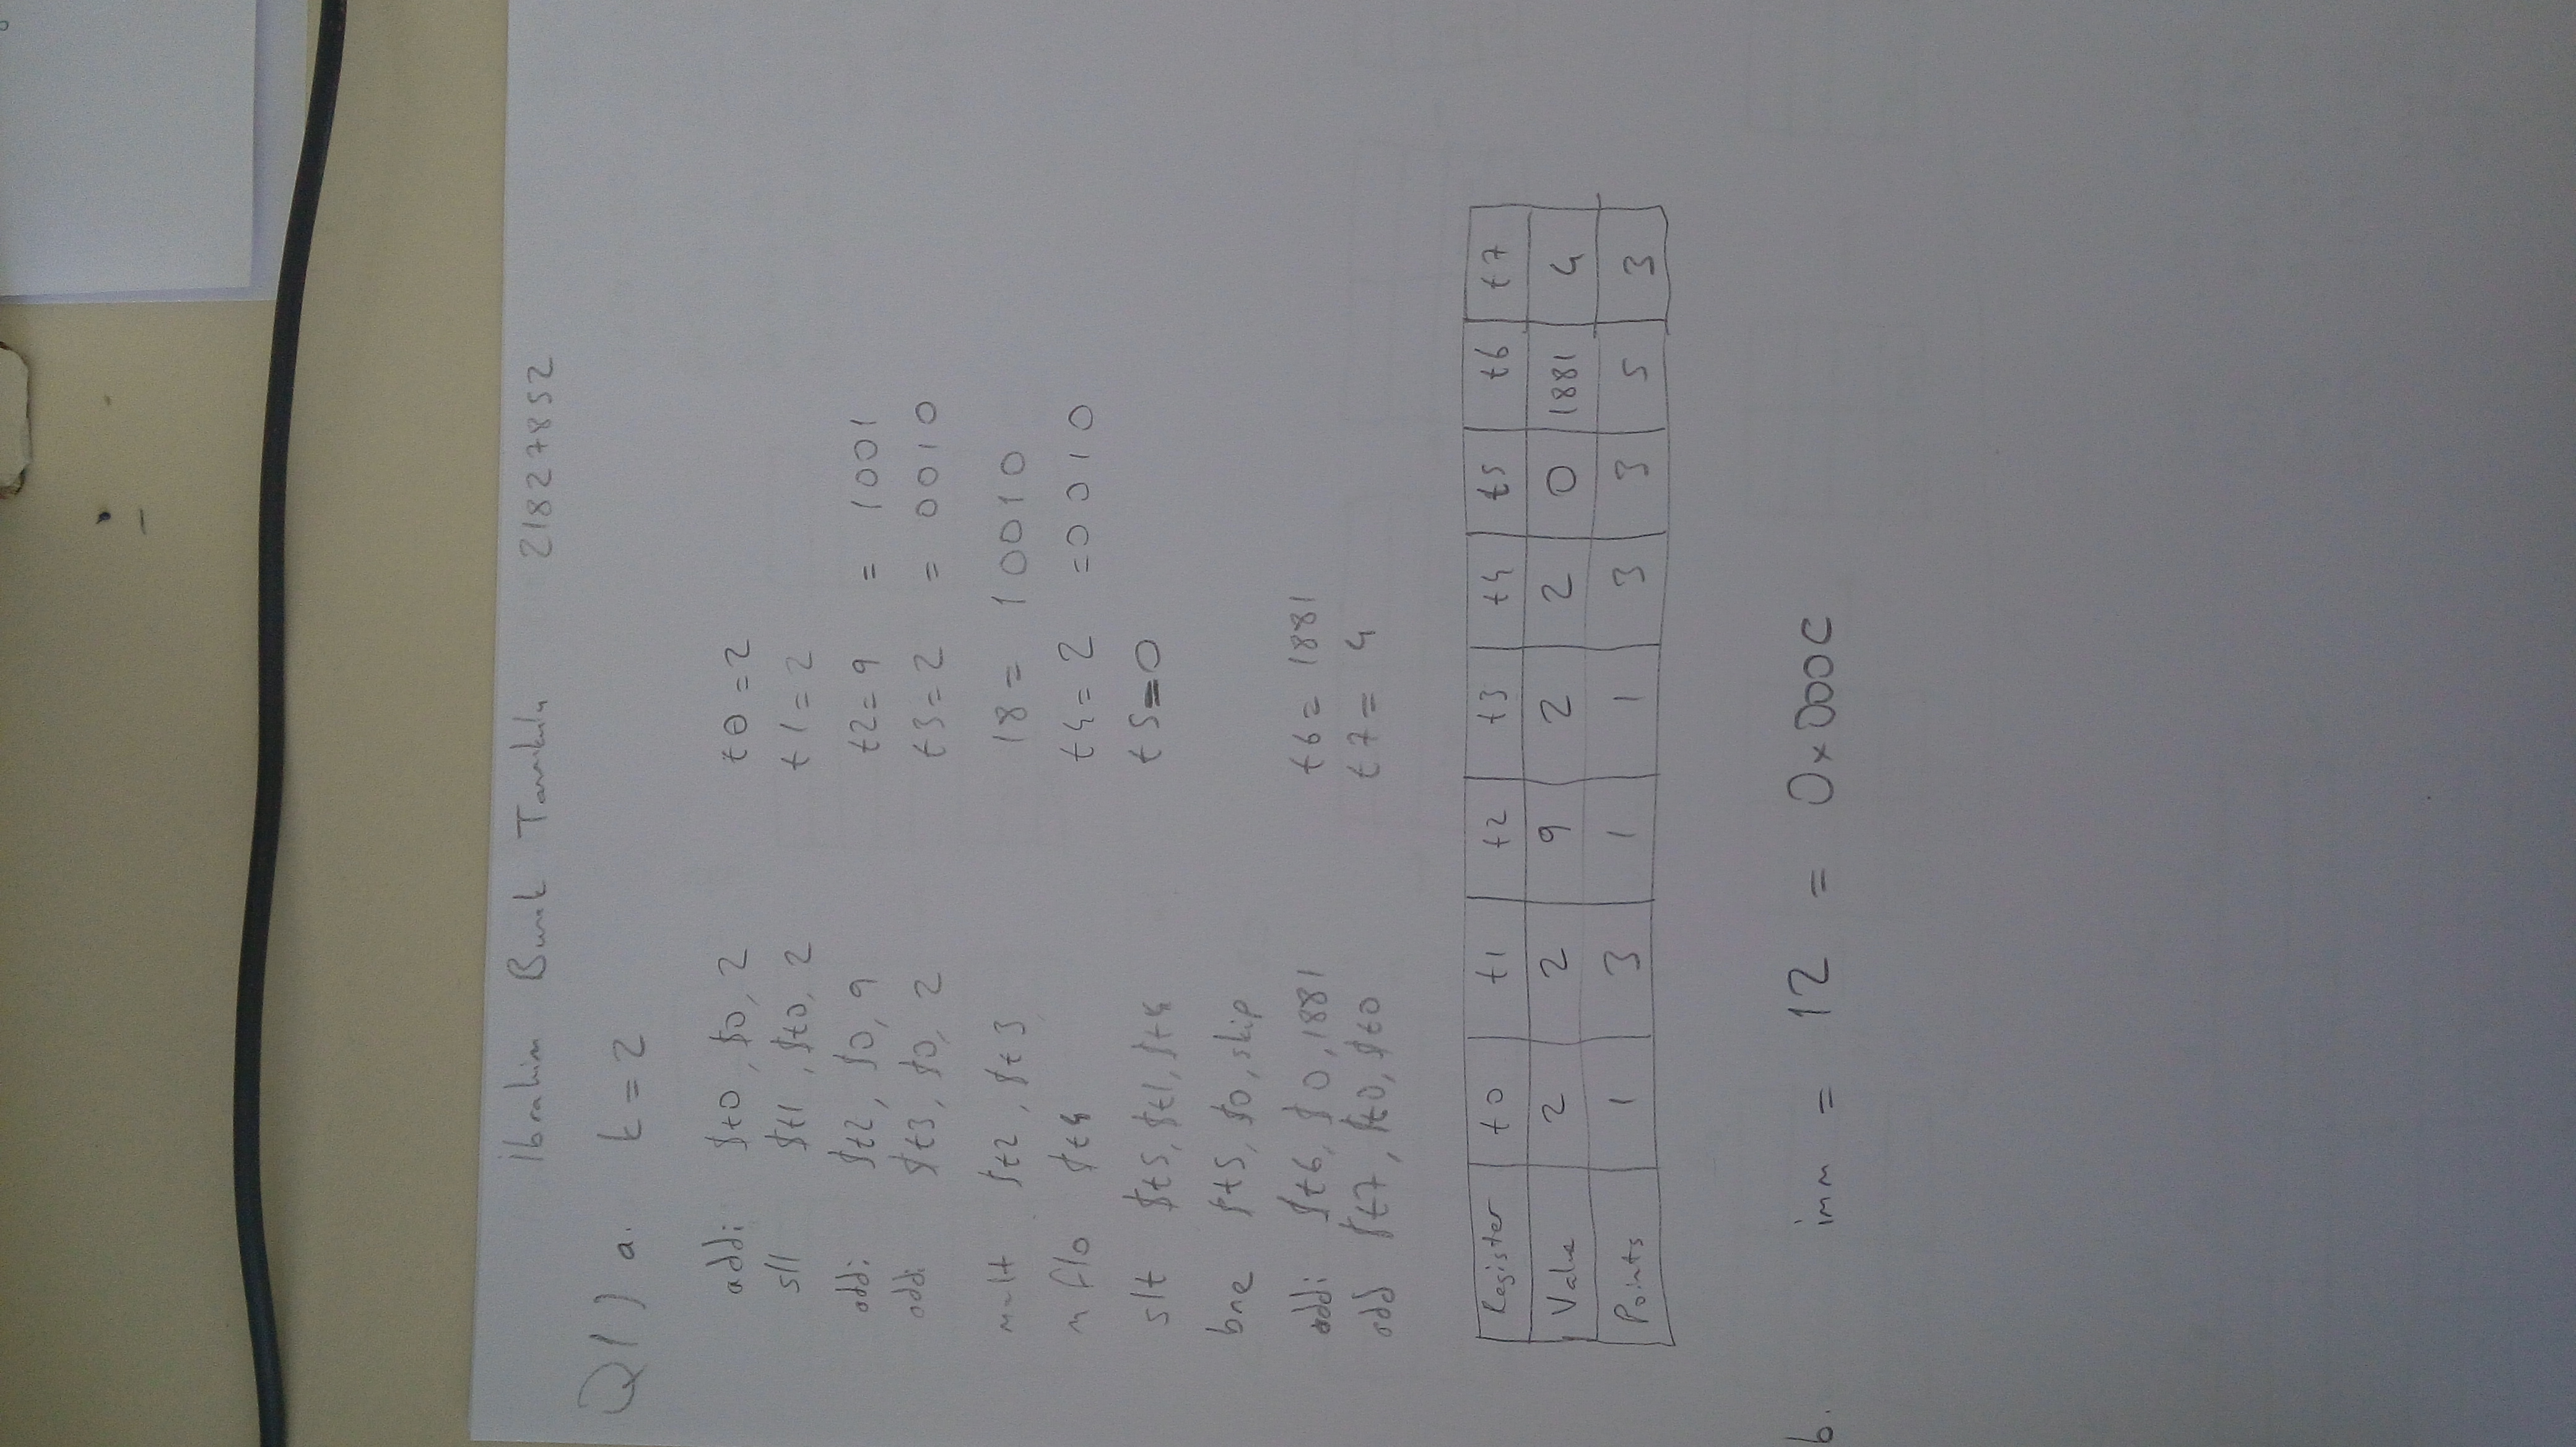 İbrahim Burak Tanrıkulu 21827852
Q1) a. k = 2
addi $t0, $0, 2 t0 = 2
sll $t1, $t0, 2 t1 = 2
addi $t2, $0, 9 t2 = 9 = 1001
addi $t3, $0, 2 t3 = 2 = 0010
mult $t2, $t3 18 = 10010
mflo $t4 t4 = 2 = 0010
slt $t5, $t1, $t4 t5 = 0
bne $t5, $0, skip
addi $t6, $0, 1881 t6 = 1881
add $t7, $t0, $t0 t7 = 4
Register t0 t1 t2 t3 t4 t5 t6 t7
Value 2 2 9 2 2 0 1881 4
Points 1 3 1 1 3 3 5 3
b. imm = 12 = 0x000C